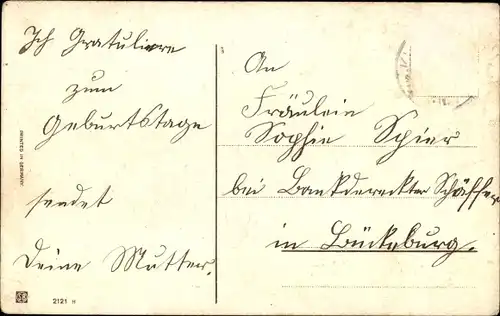 Ich Gratuliere
zum
Geburtstage
sendet
Deine Mutter.
An
Fräulein
Sophie Spier
bei Bankdereckter Schäffer
in Bückeburg.
PRINTED IN GERMANY.
2121 n